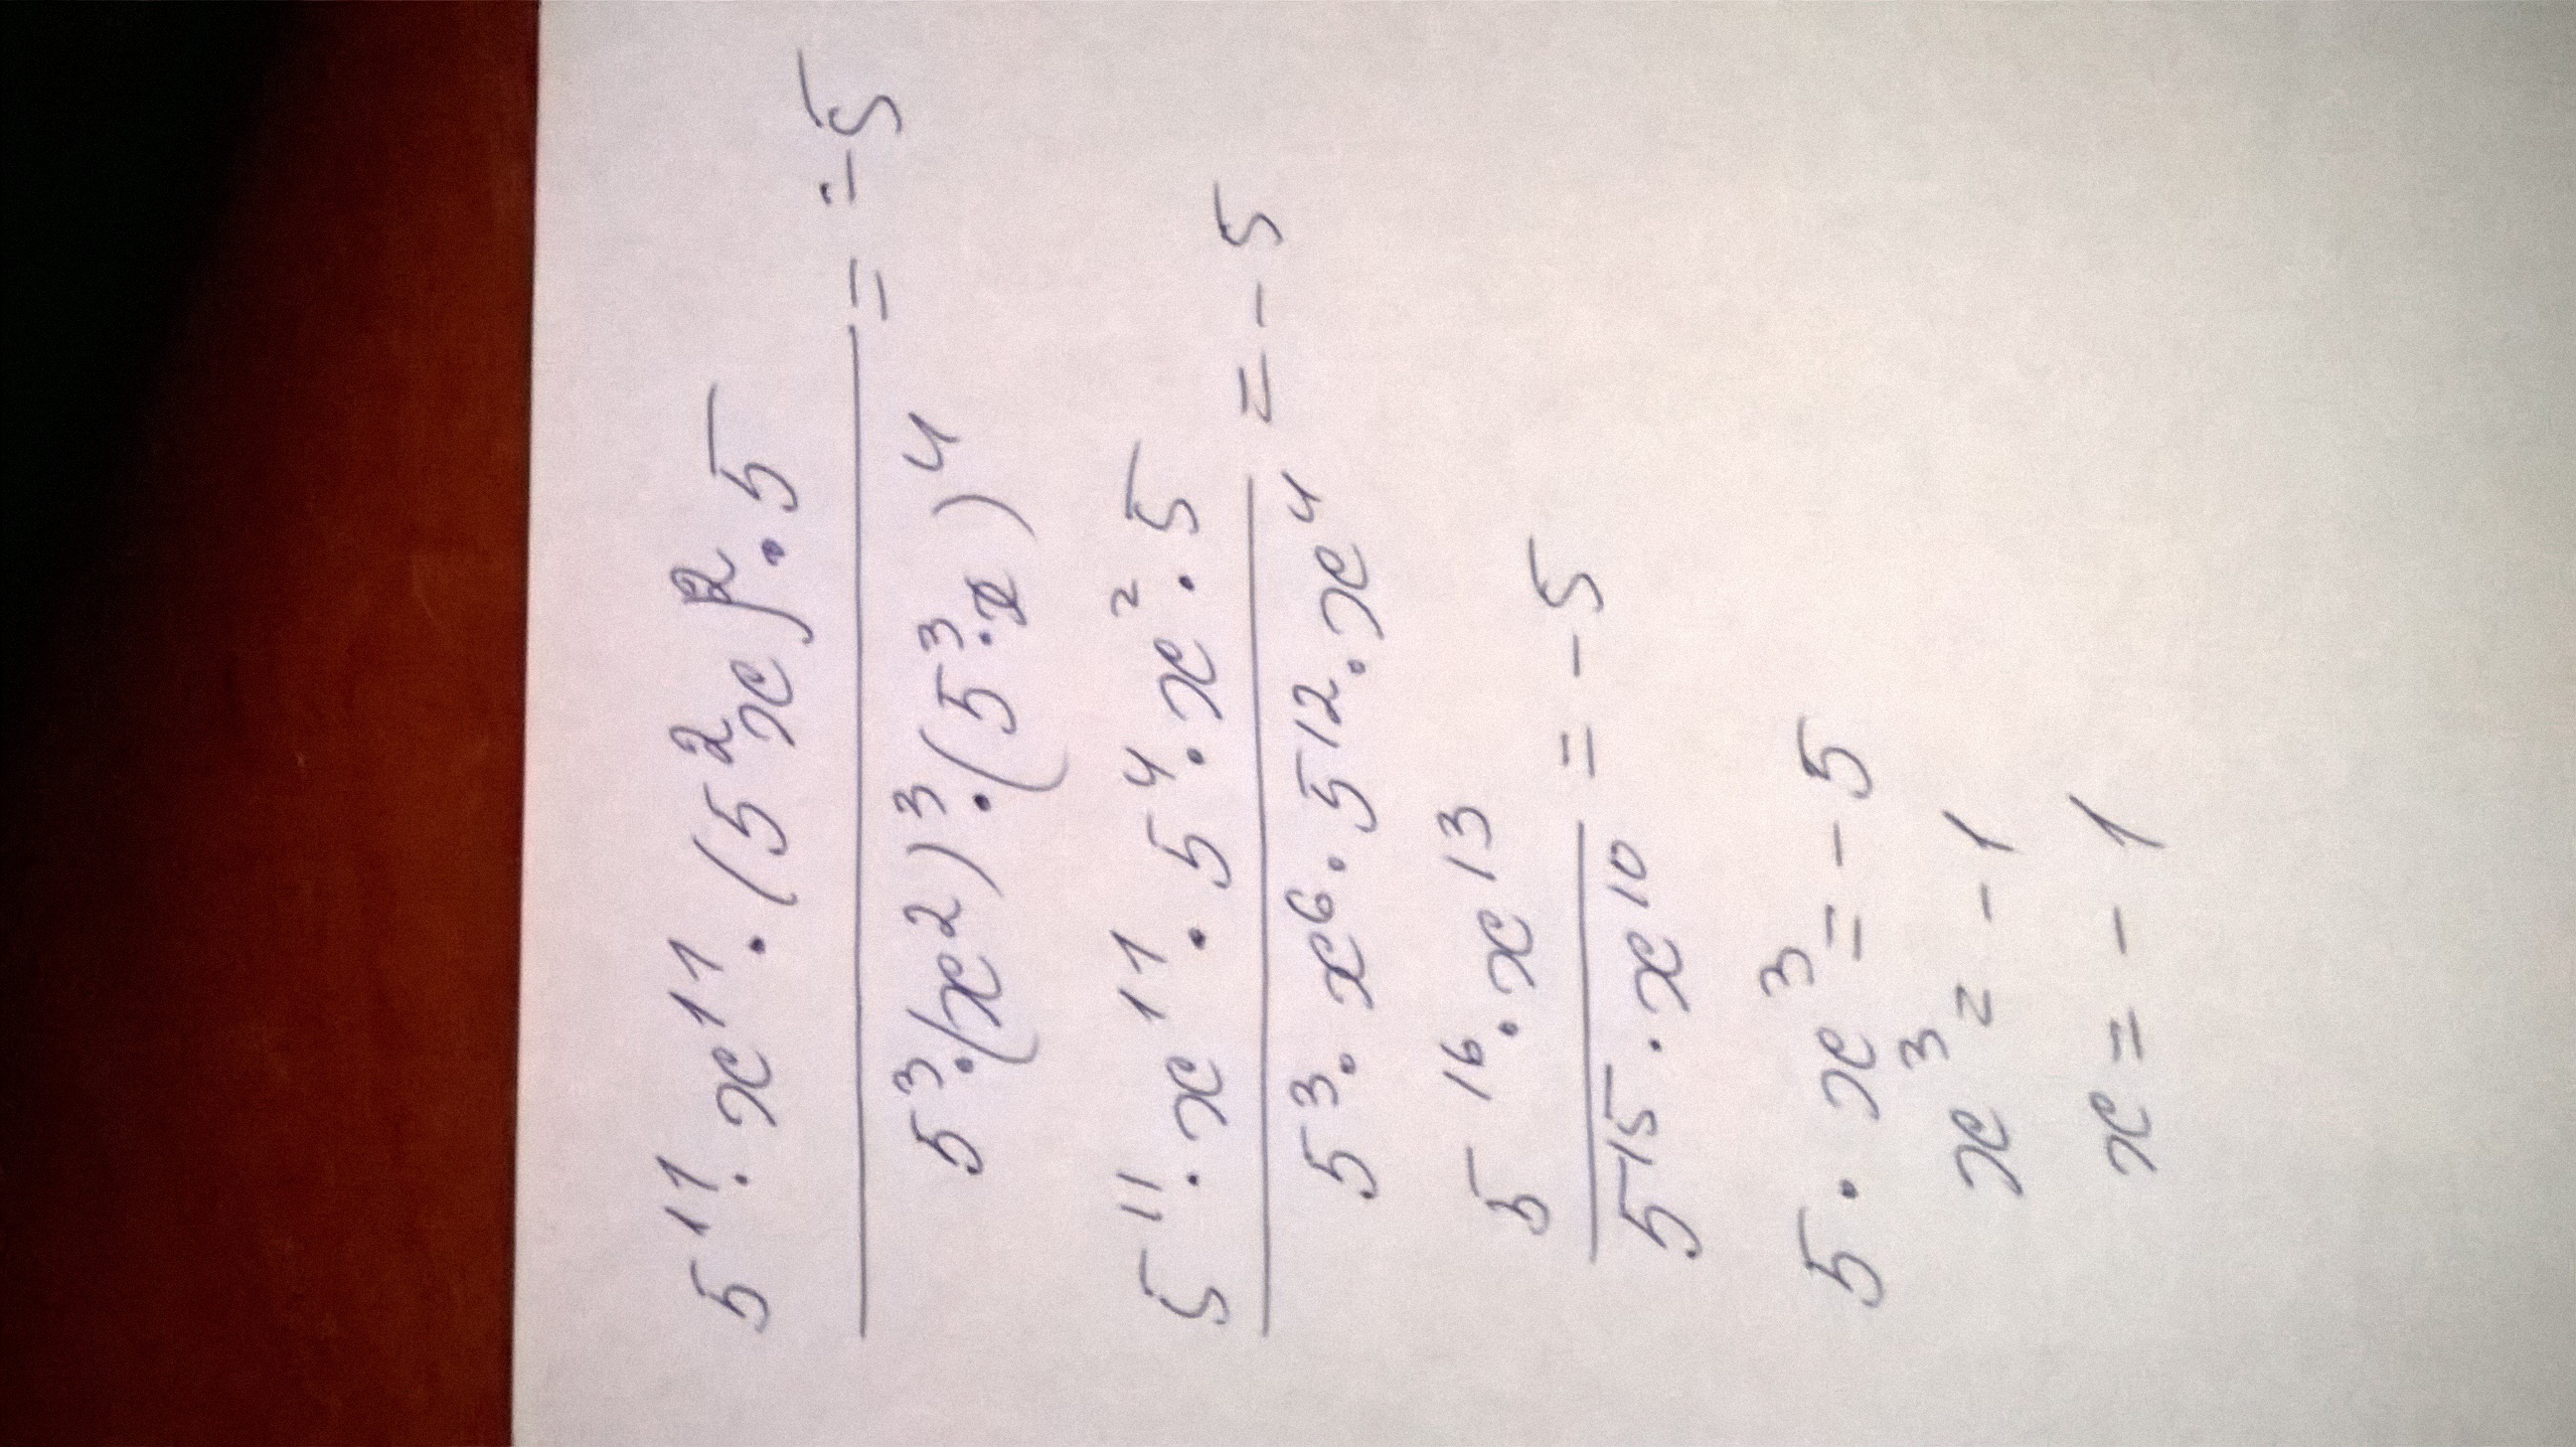 5¹¹·x¹¹·(5²x)²·5
───────── = -5
5³·(x²)³·(5³·x)⁴
5¹¹·x¹¹·5⁴·x²·5
───────── = -5
5³·x⁶·5¹²·x⁴
5¹⁶·x¹³
───── = -5
5¹⁵·x¹⁰
5·x³=-5
x³=-1
x=-1